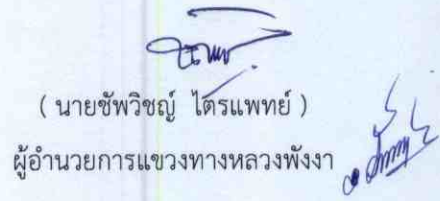 ( นายชัพวิชญ์ ไตรแพทย์ )
ผู้อำนวยการแขวงทางหลวงพังงา